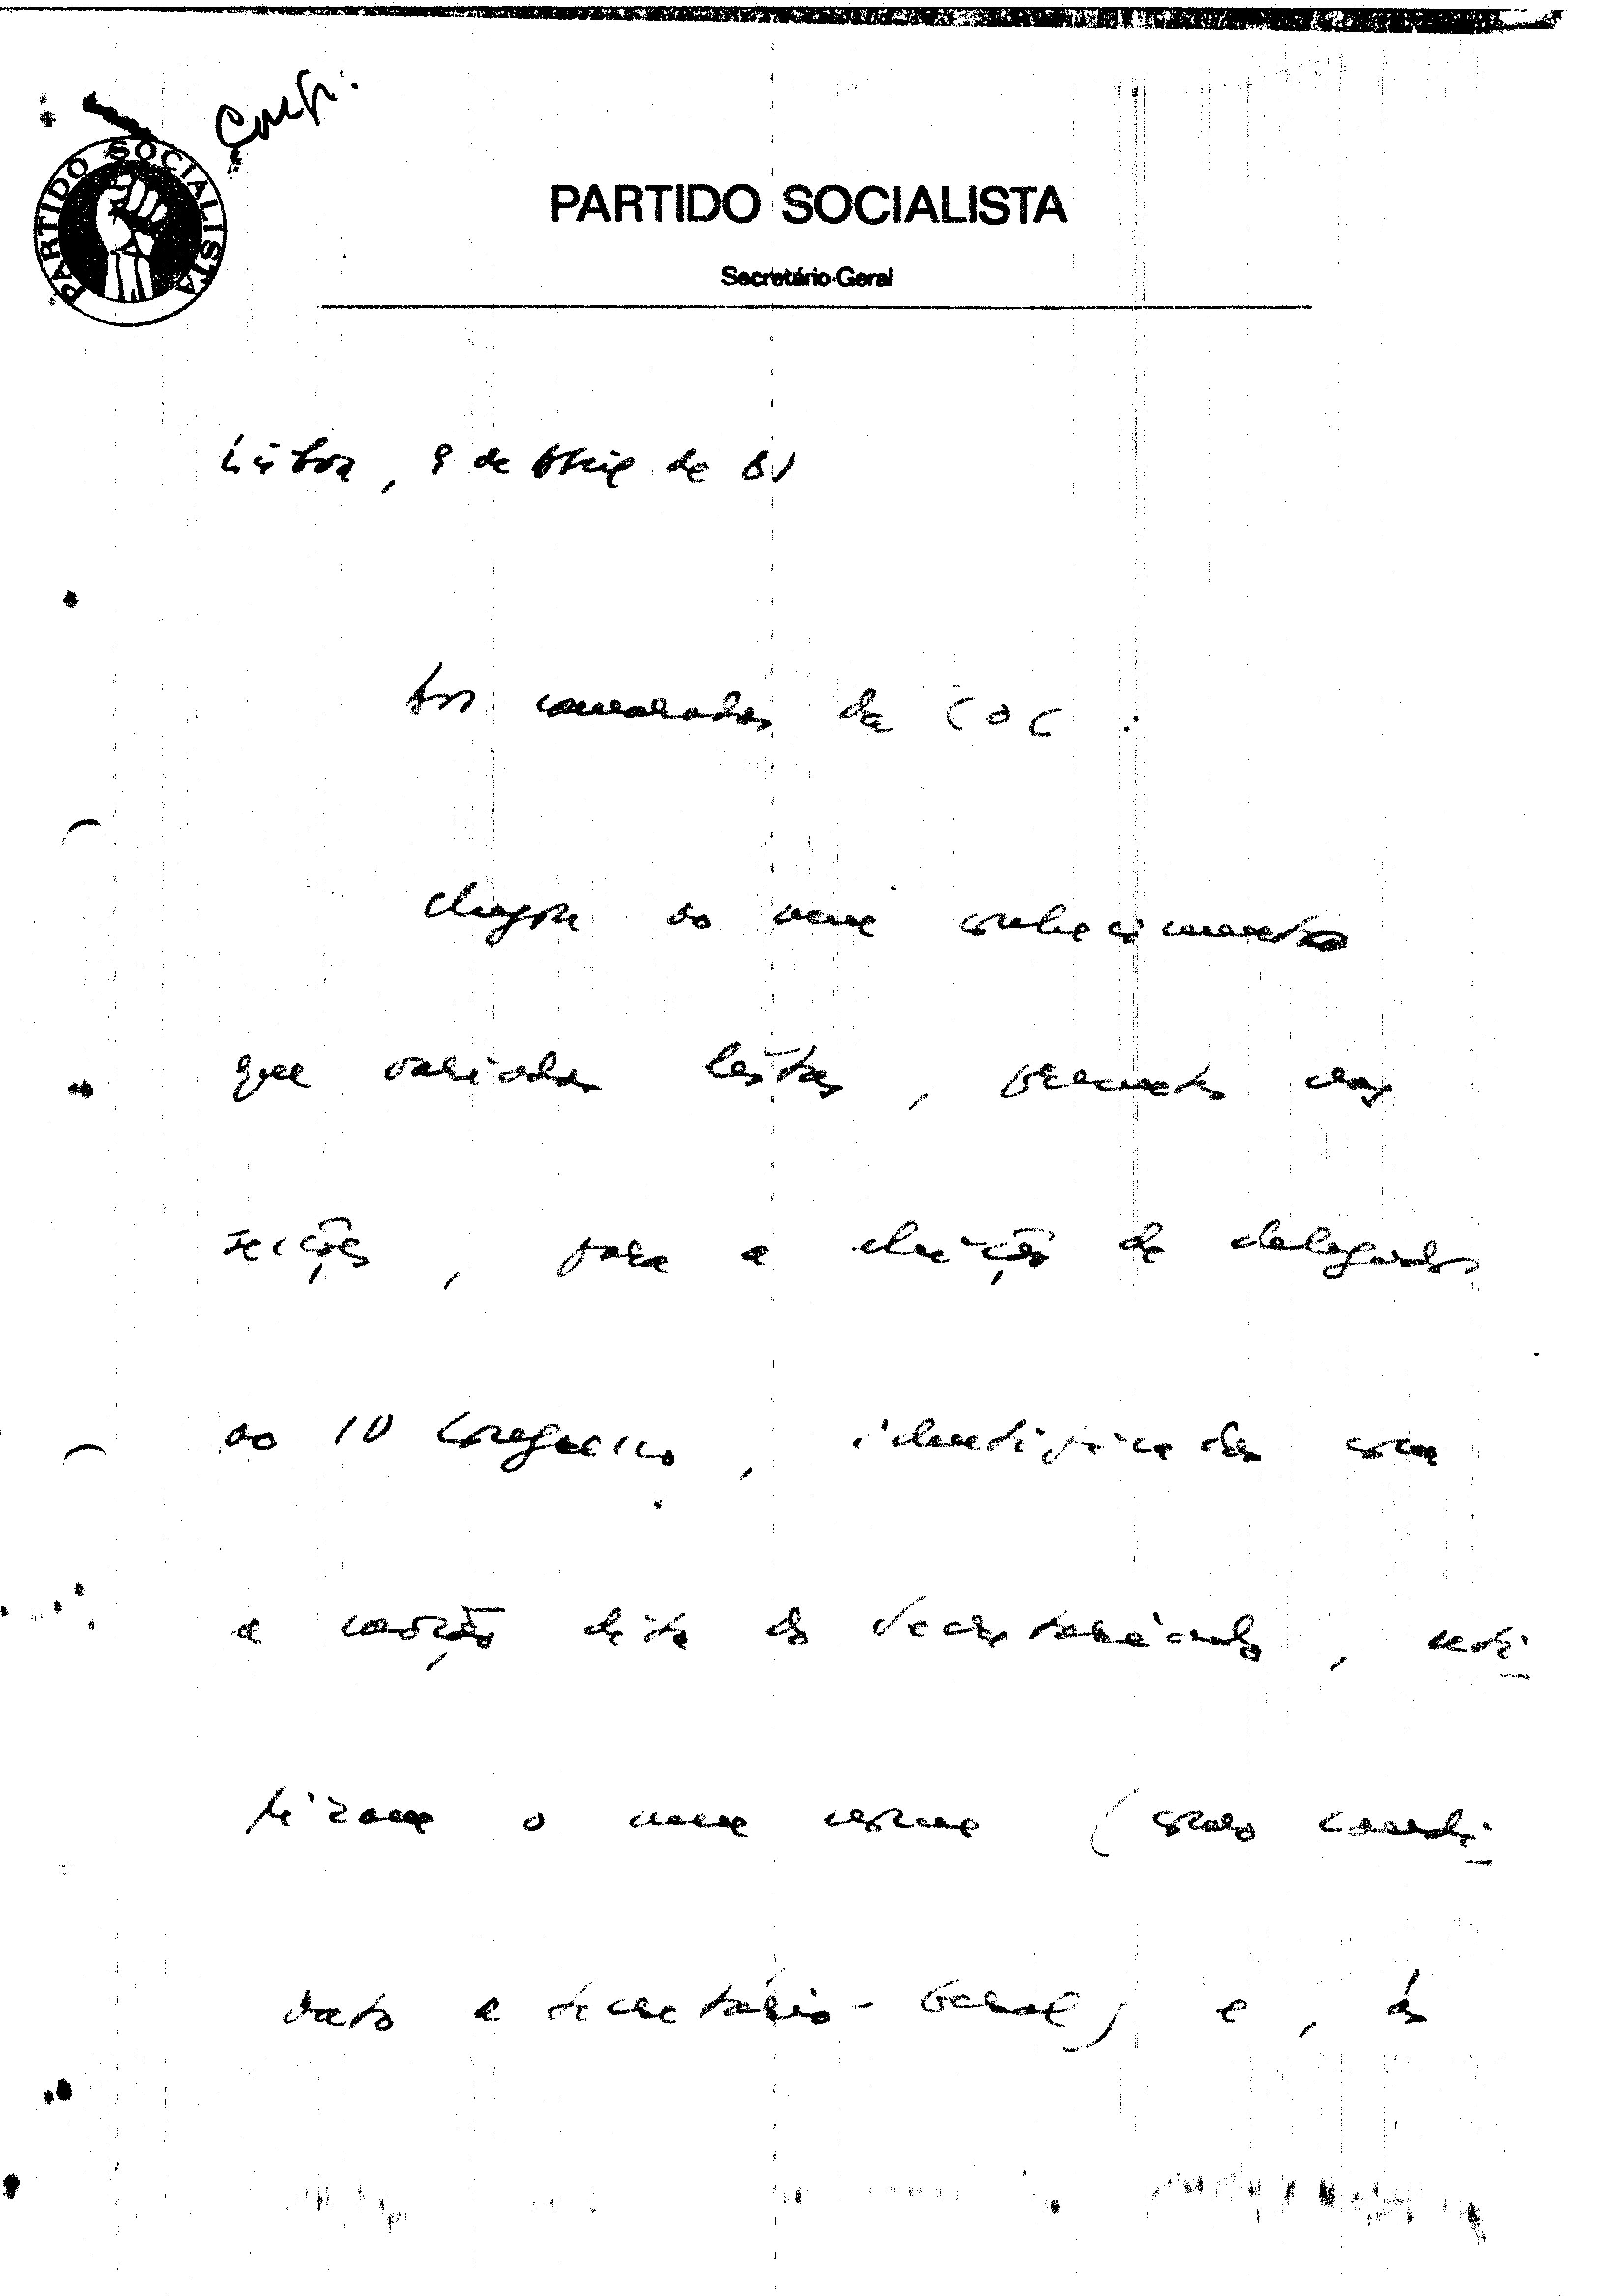 PARTIDO SOCIALISTA
Conf.
PARTIDO SOCIALISTA
Secretário-Geral
Lisboa, 9 de Abril de 81
Aos camaradas da COC :
Chegou ao meu conhecimento
que variadas listas, perante as
secções, para a eleição de delegados
ao IV Congresso, identificadas com
a moção dita do Secretariado, uti-
lizam o meu nome (como candi-
dato a Secretário-Geral) e, às